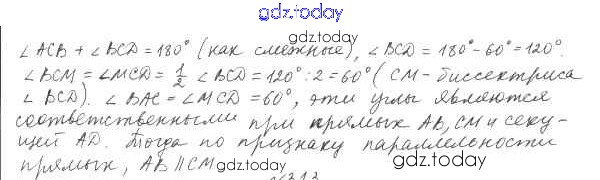 gdz.today
∠ACB + ∠BCD = 180° (как смежные), ∠BCD = 180° - 60° = 120°.
∠BCM = ∠MCD = 1/2 ∠BCD = 120° : 2 = 60° (CM - биссектриса
∠BCD). ∠BAC = ∠MCD = 60°, эти углы являются
соответственными при прямых AB, CM и секу-
щей AD. Тогда по признаку параллельности
прямых, AB || CM
gdz.today
gdz.today
gdz.today
gdz.today